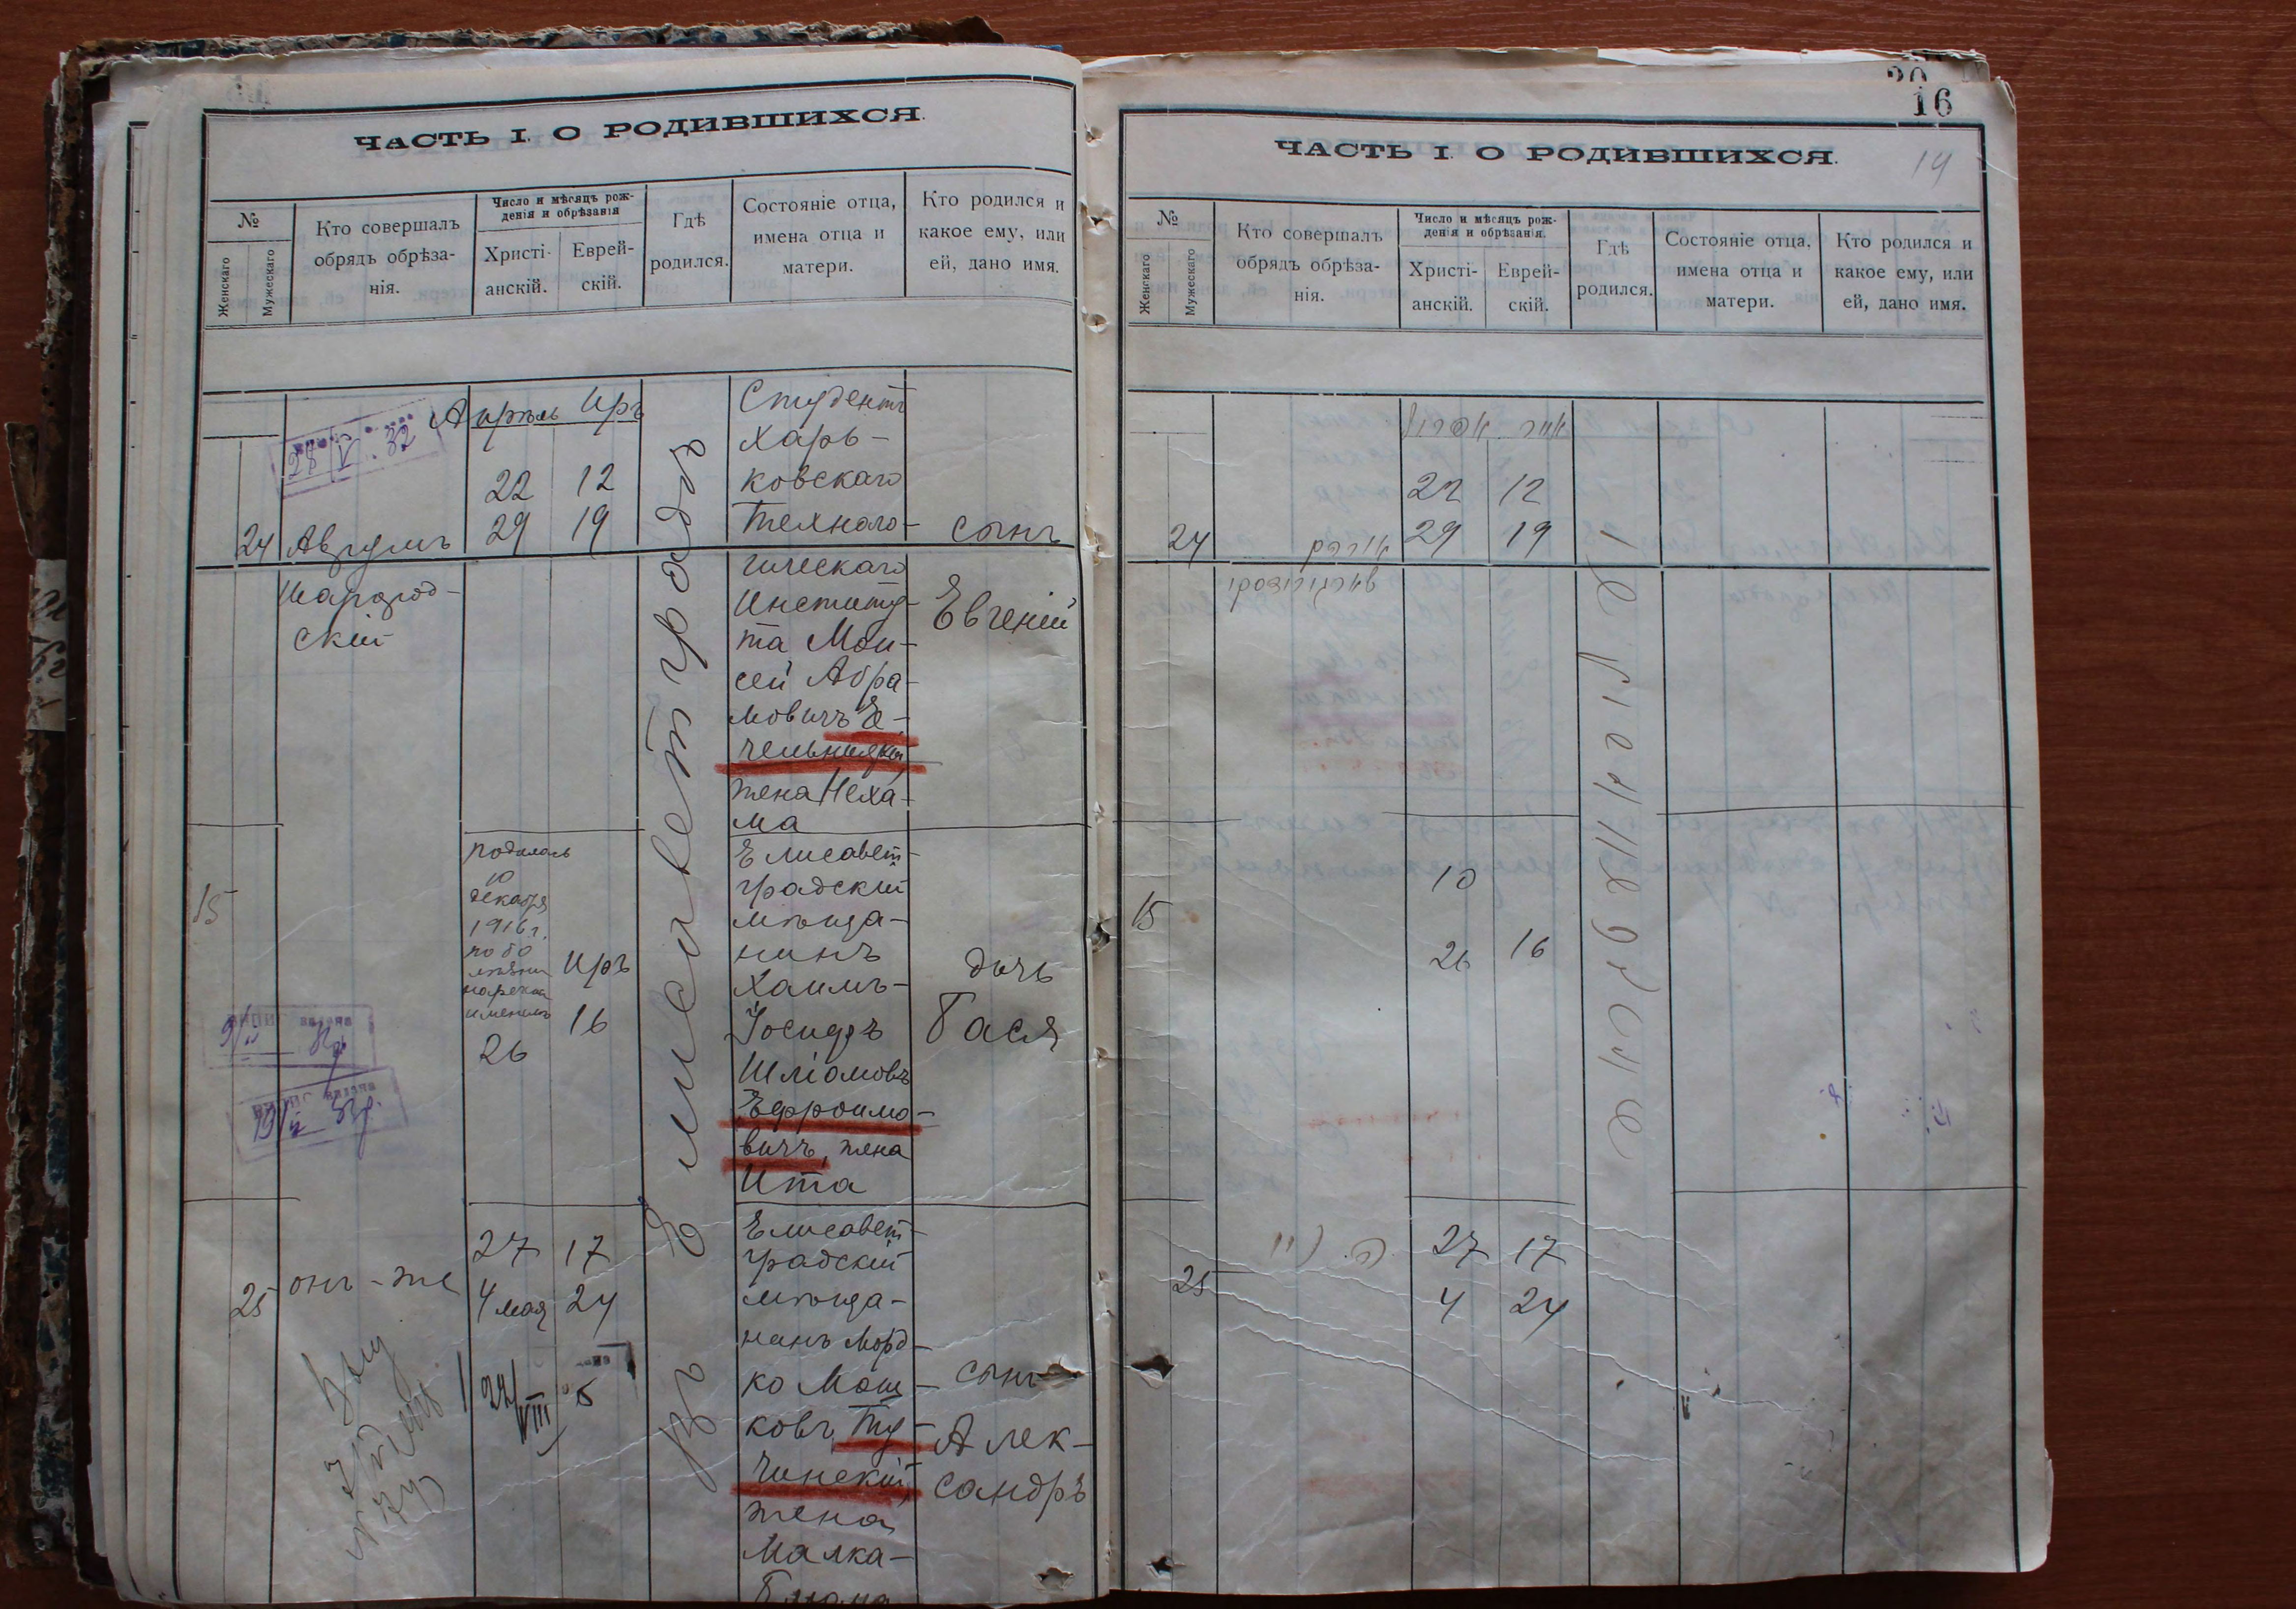 ЧАСТЬ I. О РОДИВШИХСЯ.
№
Женскаго
Мужескаго
Кто совершалъ
обрядъ обрѣза-
нія.
Число и мѣсяцъ рож-
денія и обрѣзанія
Христі-
анскій.
Еврей-
скій.
Гдѣ
родился.
Состояніе отца,
имена отца и
матери.
Кто родился и
какое ему, или
ей, дано имя.
Апрѣль Иръ
28 V 32
22 12
24
29 19
Шаргород-
скій
Въ Елисаветградѣ
Студентъ
Харь-
ковскаго
Техноло-
гическаго
Институ-
та Мои-
сей Абра-
мовичъ Е-
чельницкій,
жена Неха-
ма
сынъ
Евгеній
15
родилась
10
декабря
1916 г.
по бо
лѣзни
наречена
именемъ
26
Иръ
16
Елисавет-
градскій
мѣща-
нинъ
Хаимъ-
Іосифъ
Шліомовъ
Ефроимо-
вичъ, жена
Ита
дочь
Бася
25
онъ-же
27 17
4 мая 24
22/VIII
Елисавет-
градскій
мѣща-
нинъ Морд-
ко Мош-
ковъ Ту-
чинскій,
жена
Малка-
Блюма
сынъ
Алек-
сандръ
20
16
14
ЧАСТЬ I. О РОДИВШИХСЯ.
№
Женскаго
Мужескаго
Кто совершалъ
обрядъ обрѣза-
нія.
Число и мѣсяцъ рож-
денія и обрѣзанія.
Христі-
анскій.
Еврей-
скій.
Гдѣ
родился.
Состояніе отца,
имена отца и
матери.
Кто родился и
какое ему, или
ей, дано имя.
22 12
24
29 19
15
10
26 16
27 17
25
4 24